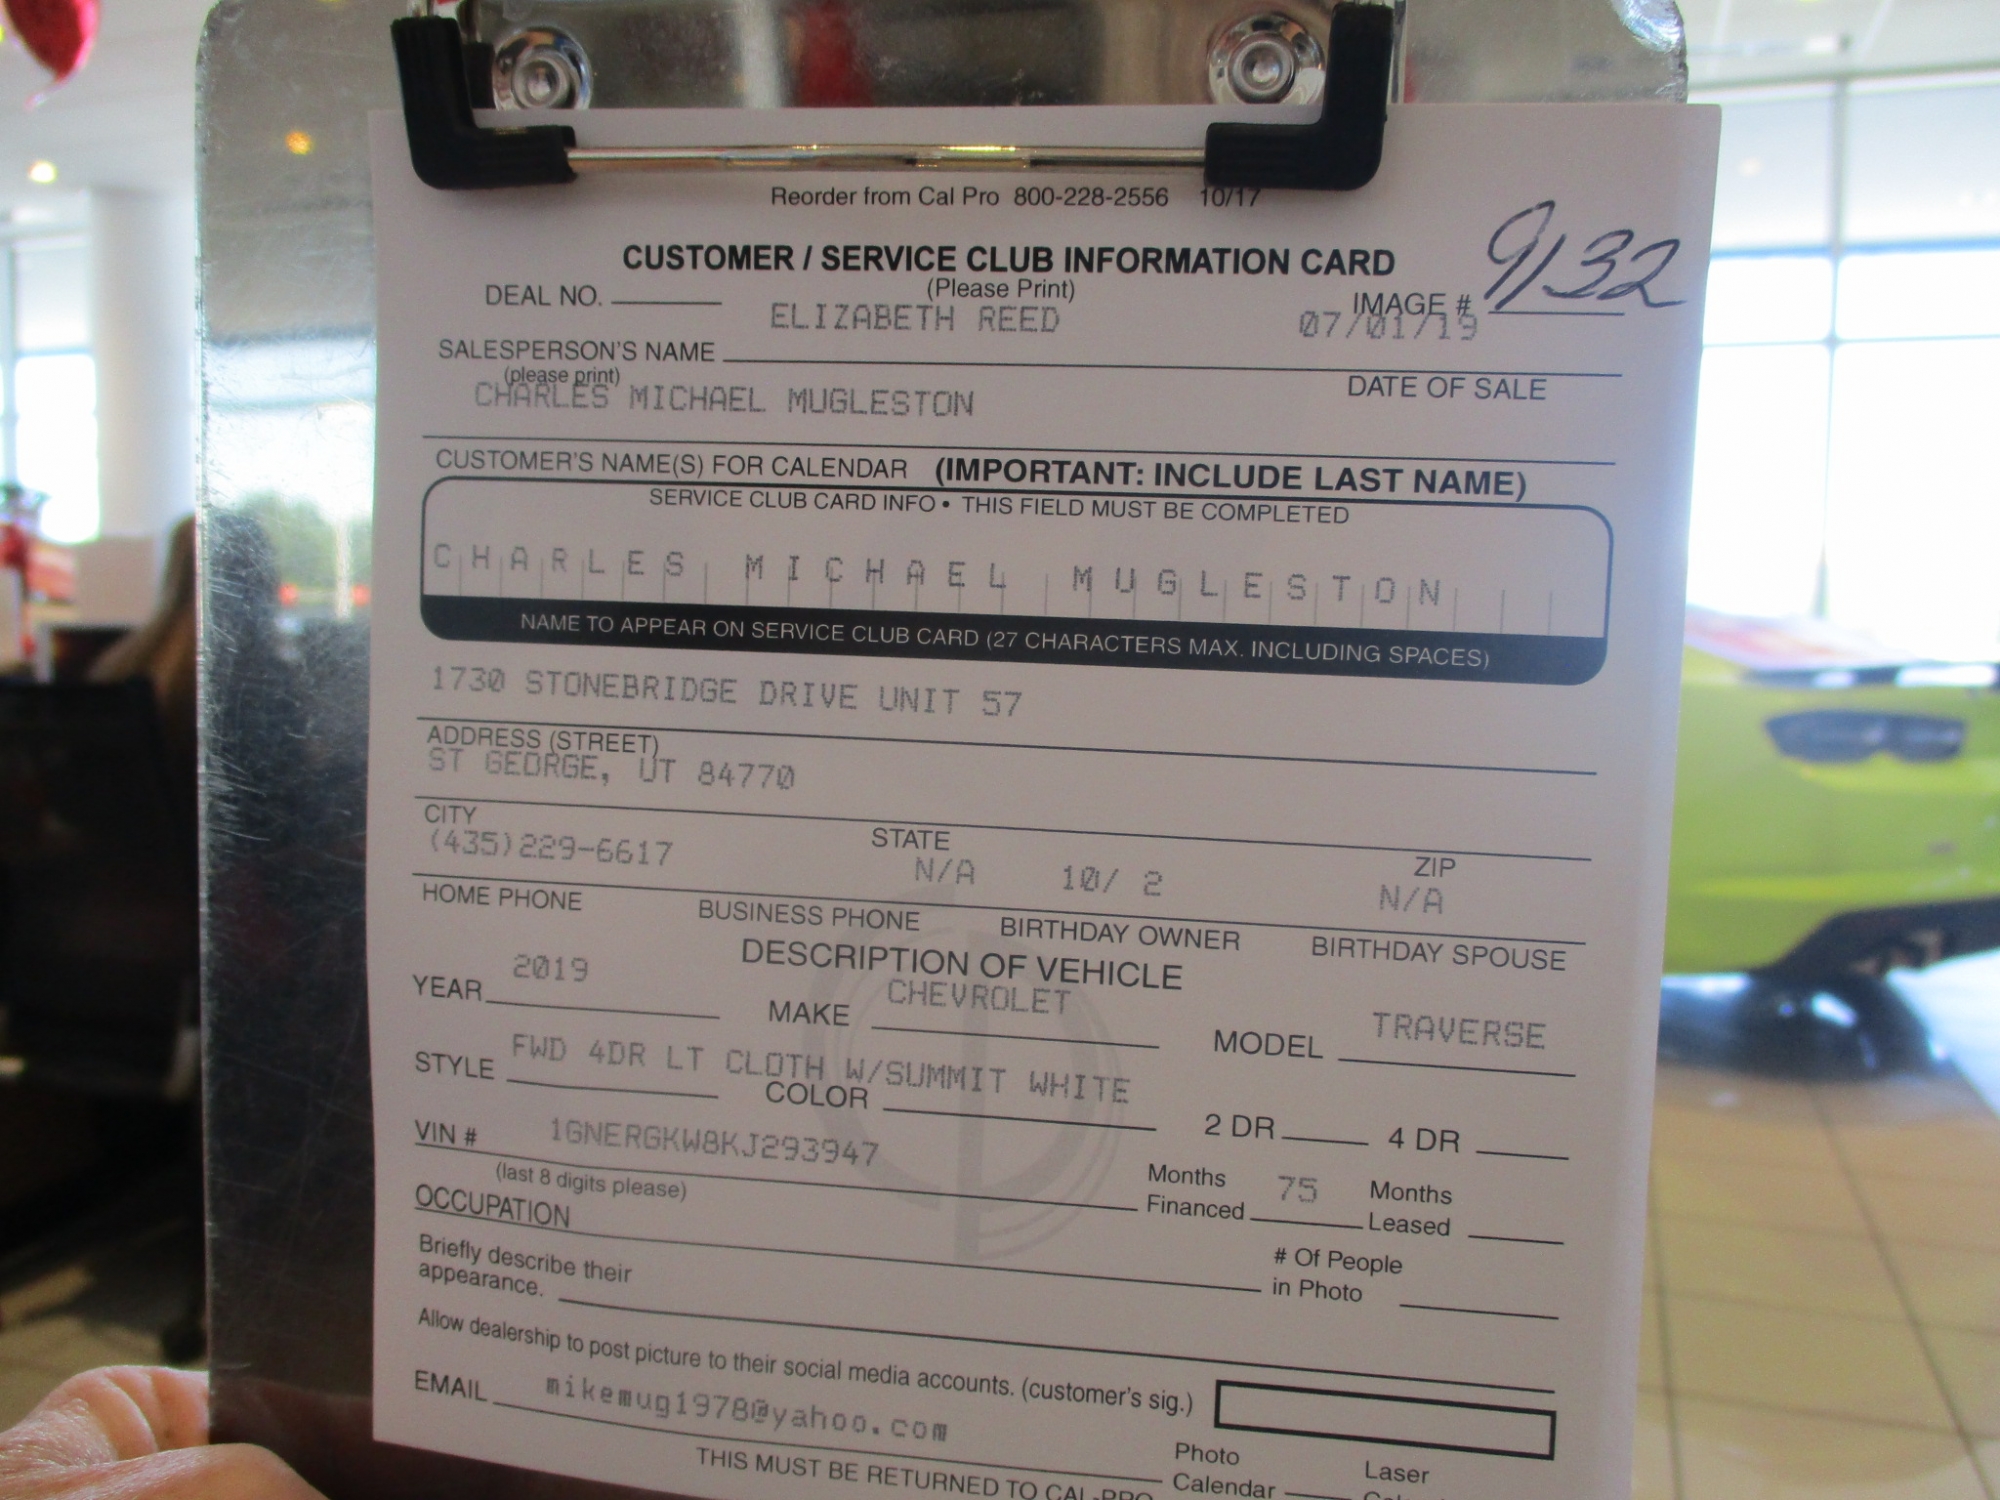 Reorder from Cal Pro 800-228-2556 10/17
CUSTOMER / SERVICE CLUB INFORMATION CARD
(Please Print)
9132
DEAL NO.
IMAGE #
ELIZABETH REED 07/01/19
SALESPERSON'S NAME
(please print)
DATE OF SALE
CHARLES MICHAEL MUGLESTON
CUSTOMER'S NAME(S) FOR CALENDAR (IMPORTANT: INCLUDE LAST NAME)
SERVICE CLUB CARD INFO • THIS FIELD MUST BE COMPLETED
CHARLES MICHAEL MUGLESTON
NAME TO APPEAR ON SERVICE CLUB CARD (27 CHARACTERS MAX. INCLUDING SPACES)
1730 STONEBRIDGE DRIVE UNIT 57
ADDRESS (STREET)
ST GEORGE, UT 84770
CITY STATE ZIP
(435)229-6617 N/A 10/ 2 N/A
HOME PHONE BUSINESS PHONE BIRTHDAY OWNER BIRTHDAY SPOUSE
DESCRIPTION OF VEHICLE
YEAR 2019 MAKE CHEVROLET MODEL TRAVERSE
STYLE FWD 4DR LT CLOTH W/SUMMIT WHITE
COLOR 2 DR 4 DR
VIN # 1GNERGKW8KJ293947
(last 8 digits please)
Months Financed 75 Months Leased
OCCUPATION
# Of People
in Photo
Briefly describe their
appearance.
Allow dealership to post picture to their social media accounts. (customer's sig.)
EMAIL mikemug1978@yahoo.com
Photo
Calendar
Laser
THIS MUST BE RETURNED TO CAL-PRO